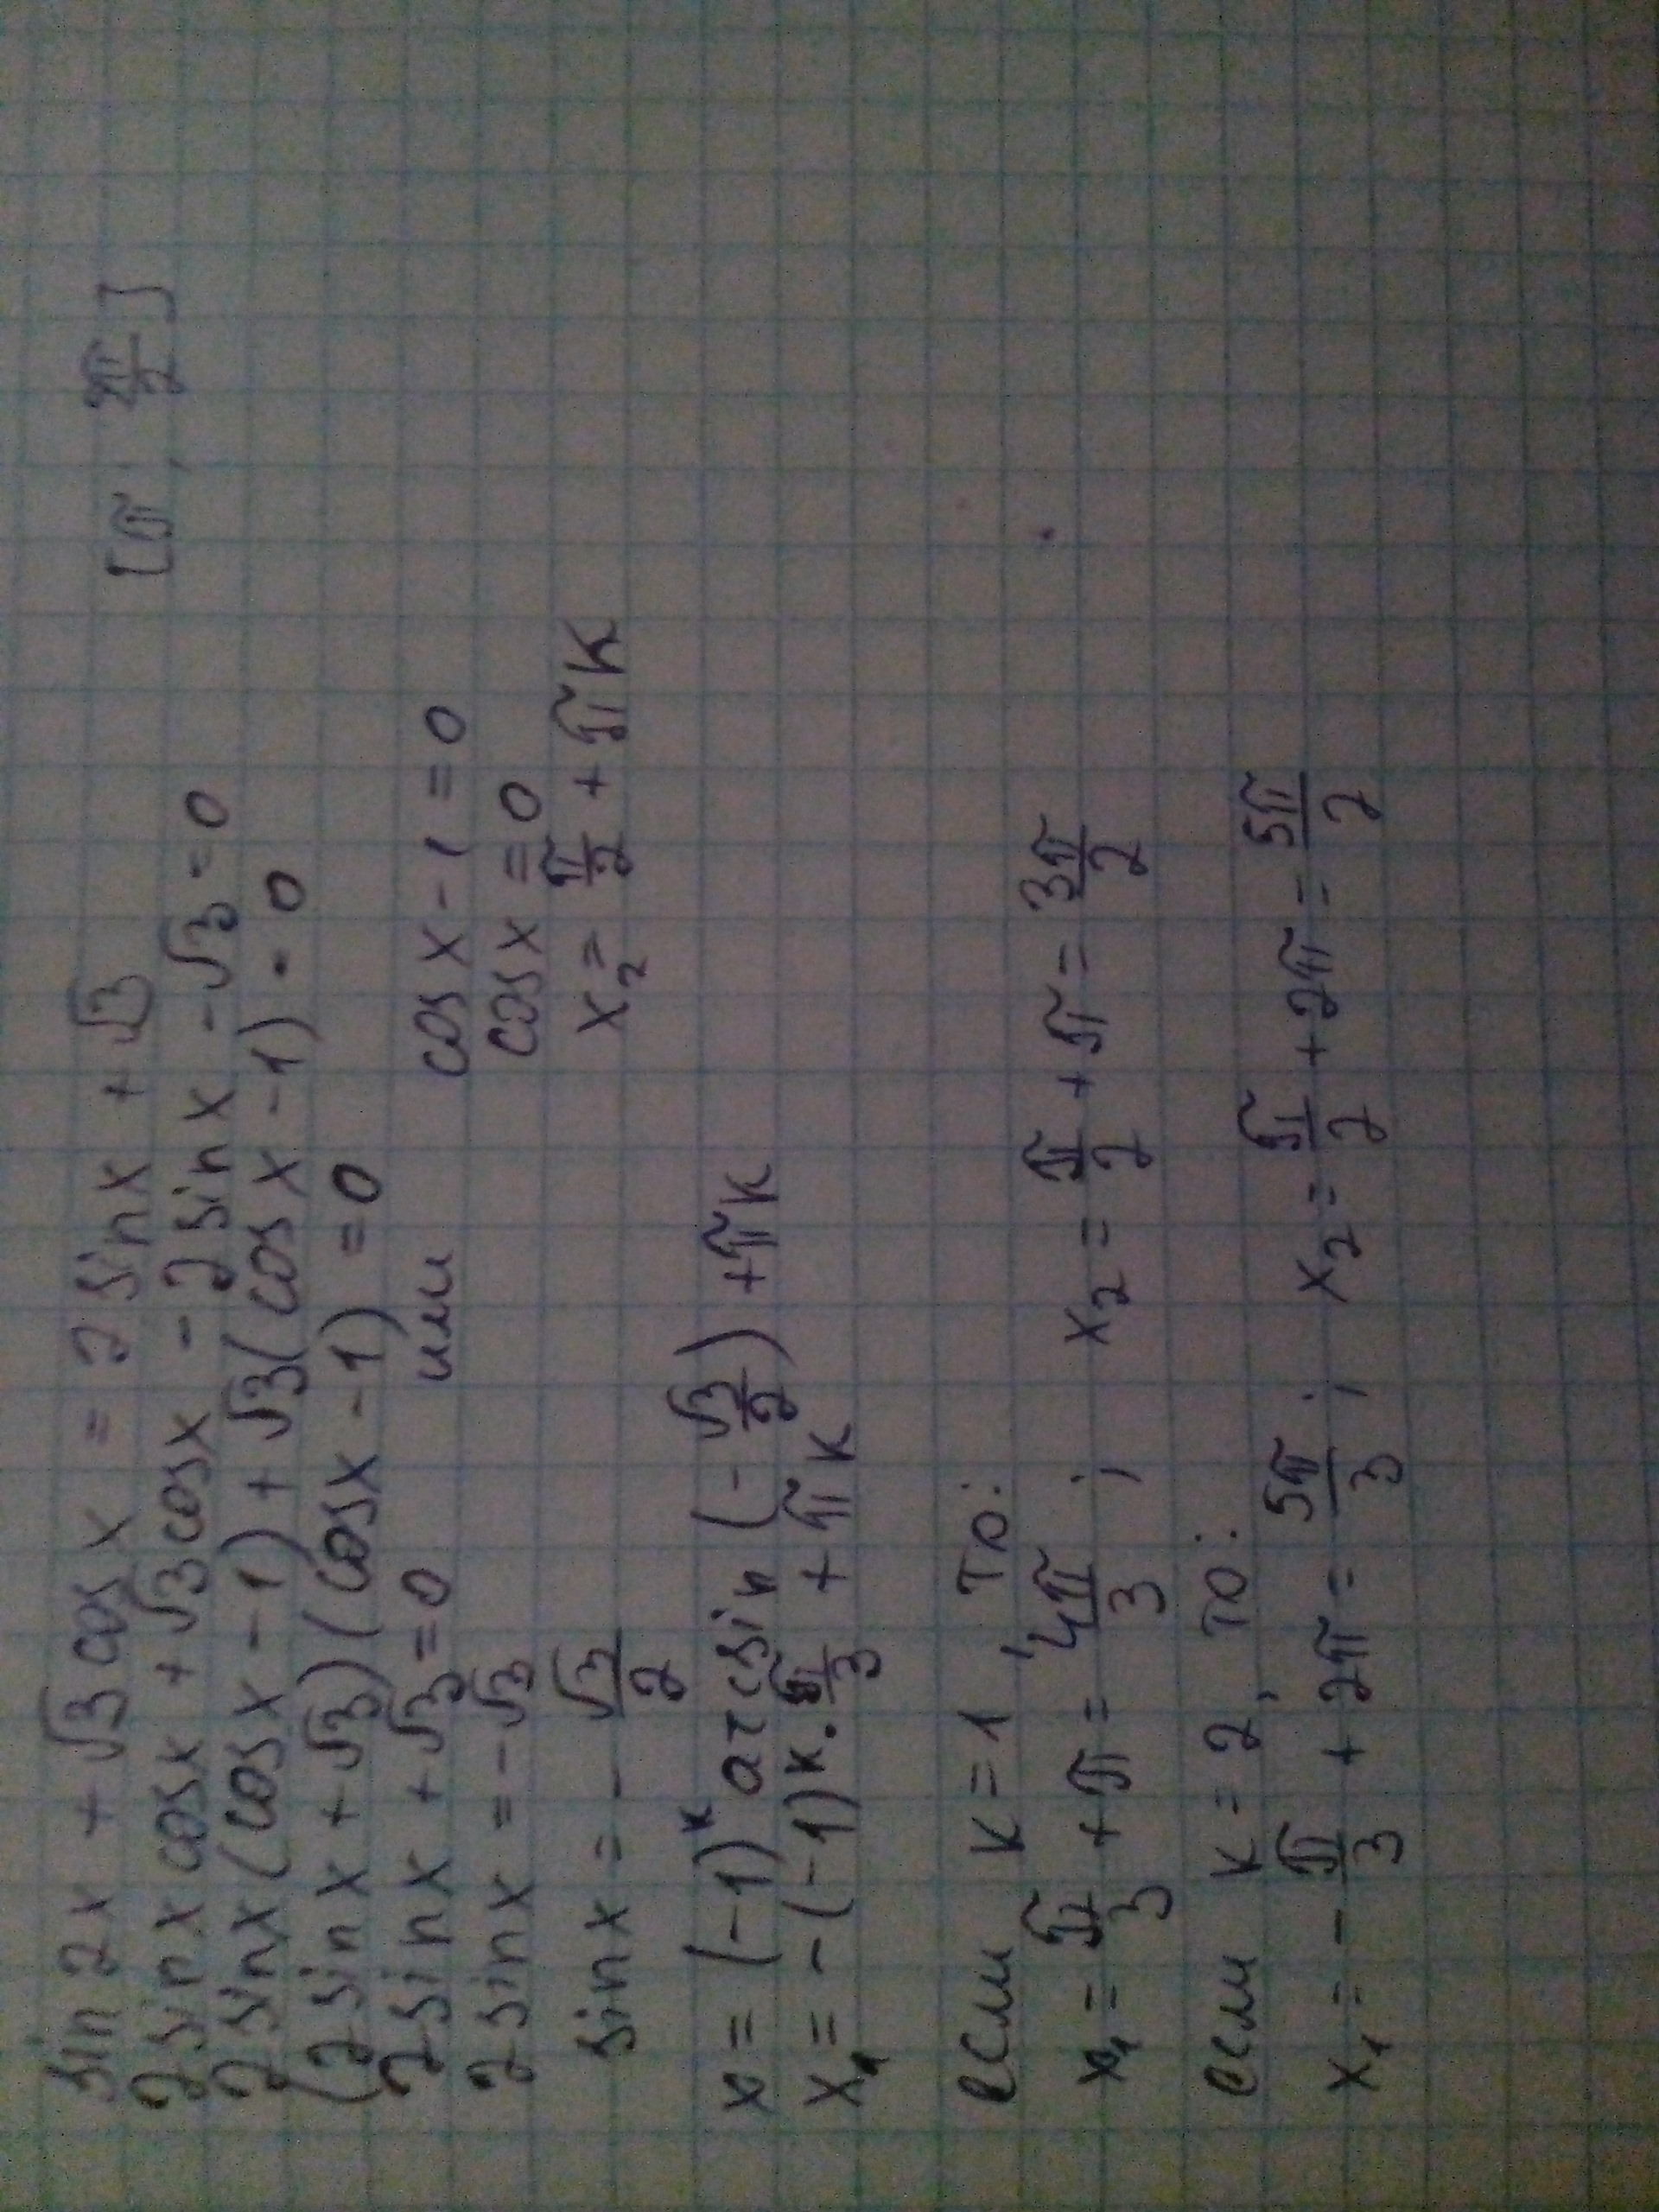 sin 2x + √3 cos x = 2 sin x + √3 [π;
2 sin x cos x + √3 cos x - 2 sin x - √3 = 0
2 sin x (cos x - 1) + √3 (cos x - 1) = 0
(2 sin x + √3)(cos x - 1) = 0
2 sin x + √3 = 0 или cos x - 1 = 0
2 sin x = - √3 cos x = 0
sin x = - √3/2 x₂ = π/2 + πк
x = (-1)ᵏ arcsin (- √3/2) + πк
x₁ = - (-1)ᵏ · π/3 + πк
если к = 1, то:
x₁ = π/3 + π = 4π/3 ; x₂ = π/2 + π = 3π/2
если к = 2, то:
x₁ = - π/3 + 2π = 5π/3 ; x₂ = π/2 + 2π = 5π/2